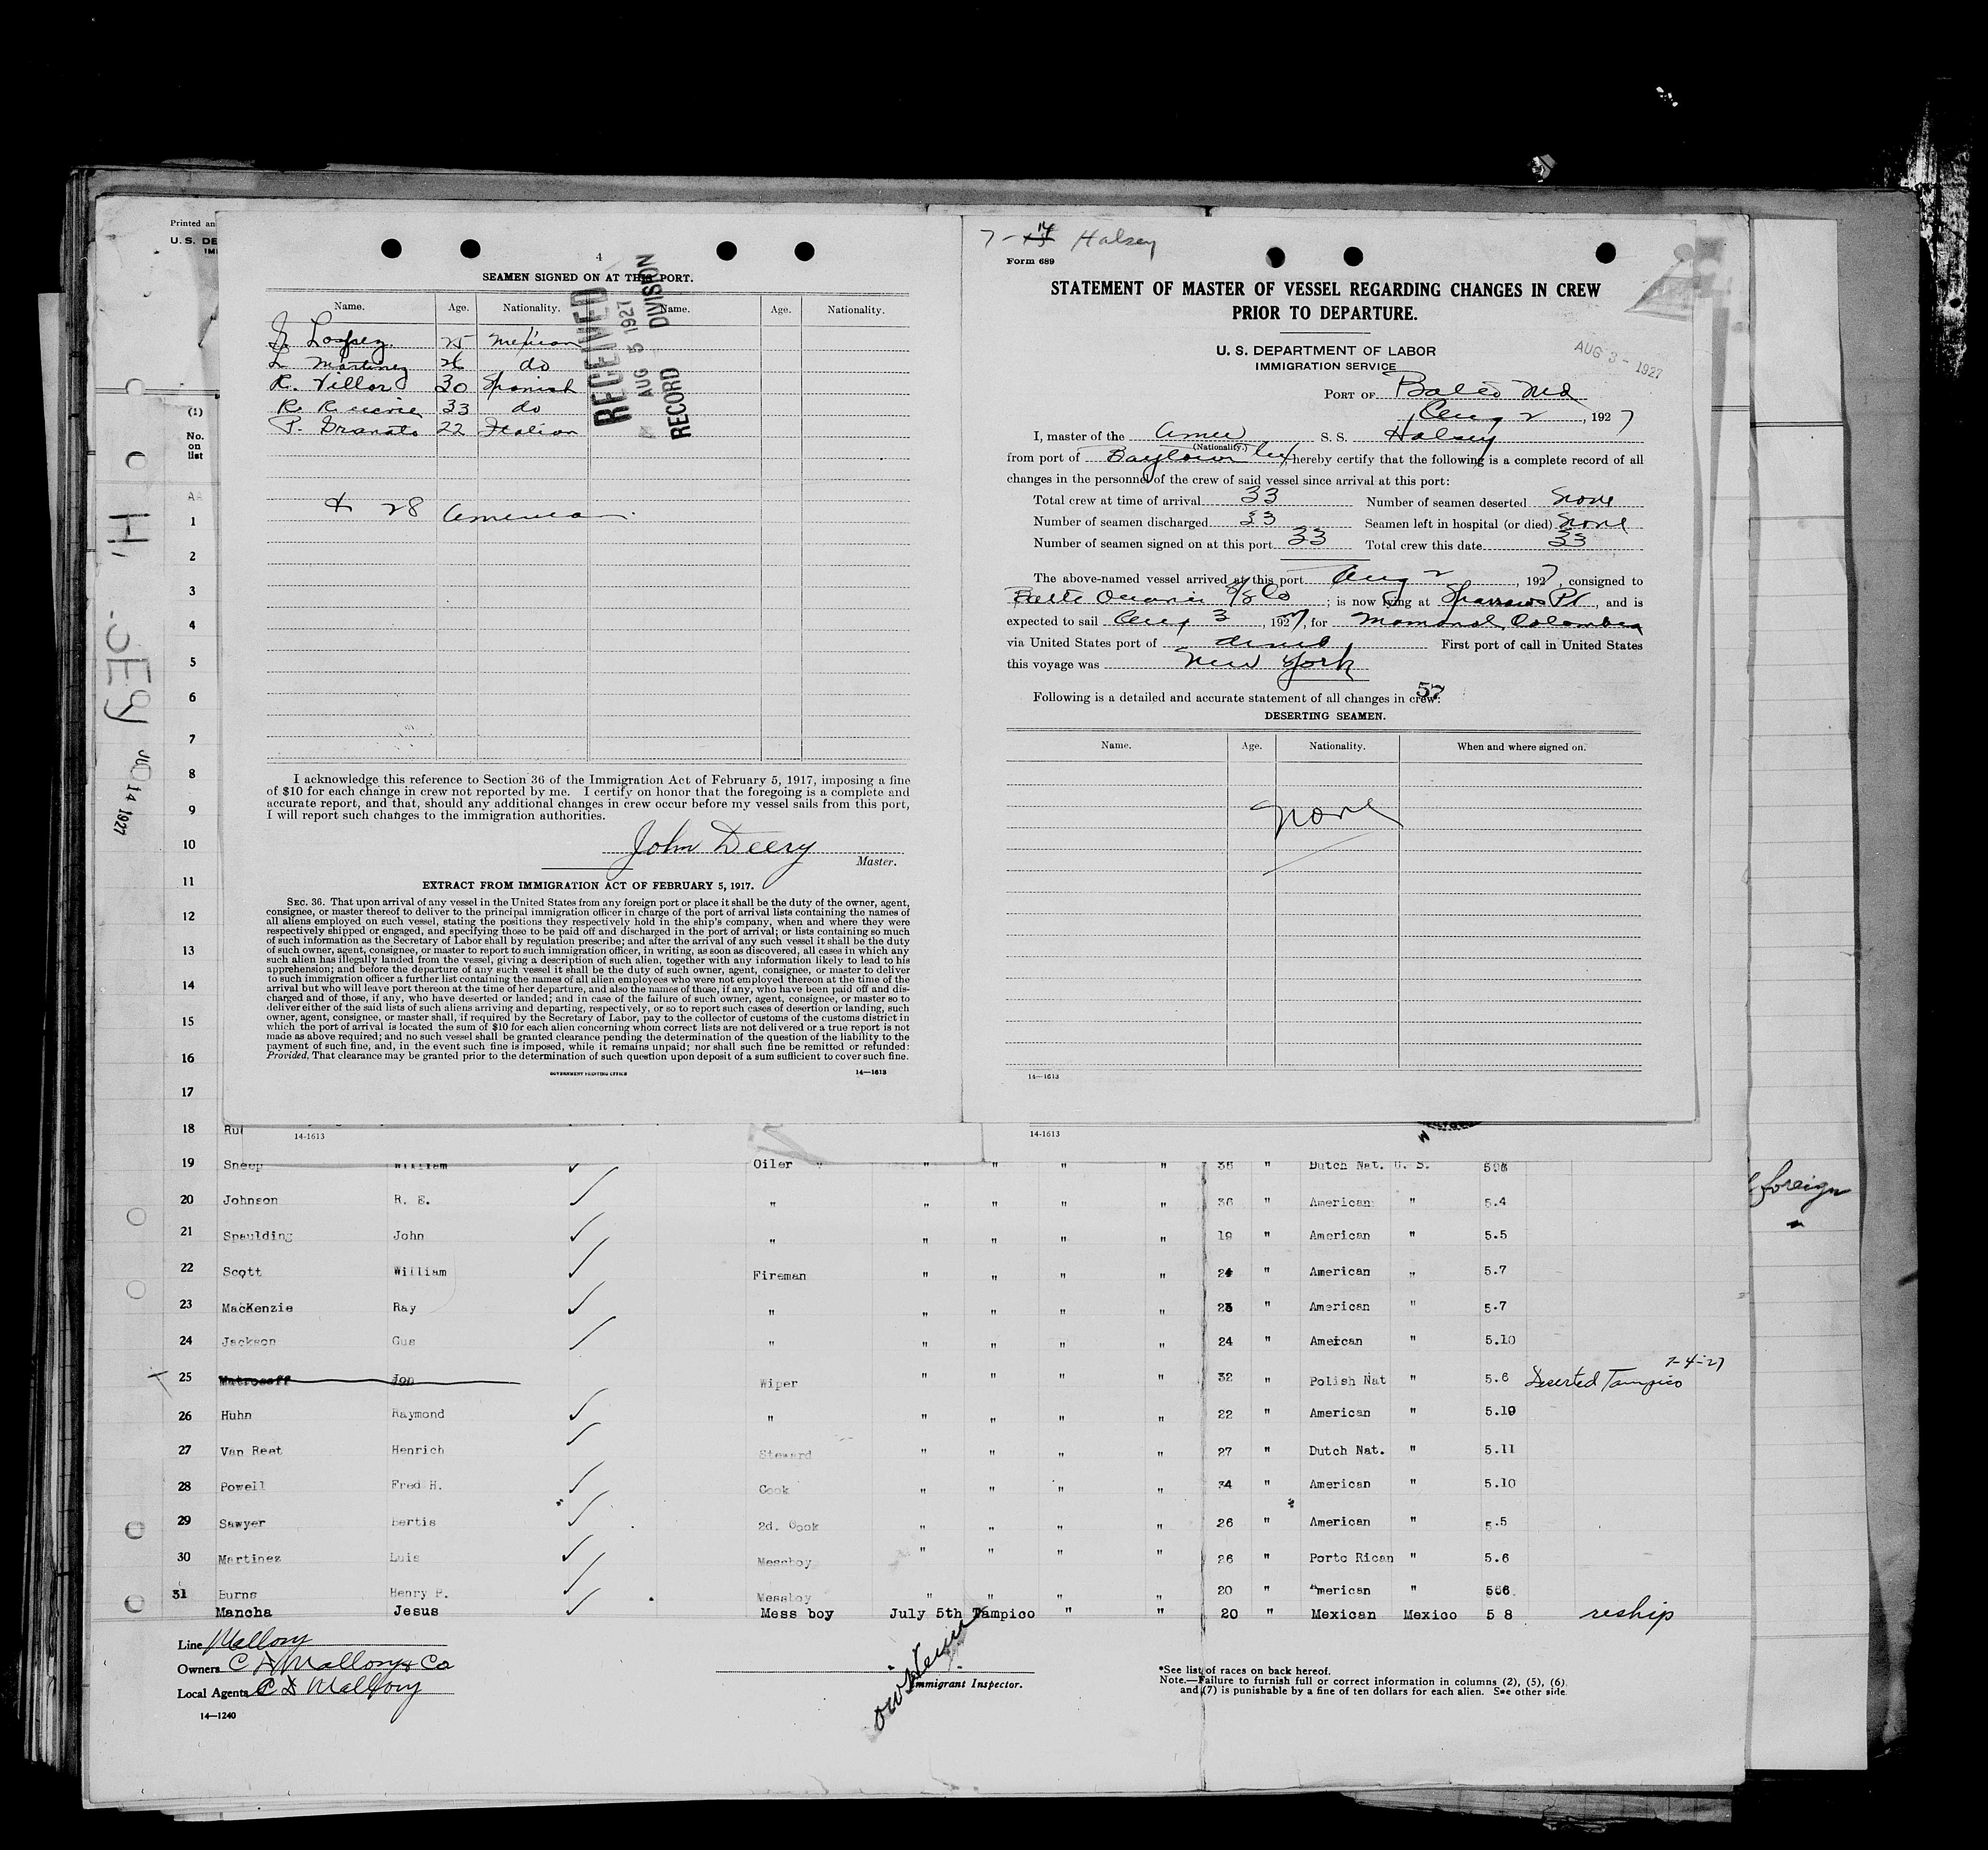 Printed an
U. S. DE
IM
(1)
No.
on
list
AA
1
2
3
4
5
6
7
8
9
10
11
12
13
14
15
16
17
JUL 14 1927
4
SEAMEN SIGNED ON AT THIS PORT.
Name. Age. Nationality. Name. Age. Nationality.
J. Lopez. 25 Mexican
L Martinez 26 do
R. Villar 30 Spanish
R. 33 do
P. Granato 22 Italian
& 28 American.
RECEIVED
AUG 5 1927
RECORD DIVISION
I acknowledge this reference to Section 36 of the Immigration Act of February 5, 1917, imposing a fine
of $10 for each change in crew not reported by me. I certify on honor that the foregoing is a complete and
accurate report, and that, should any additional changes in crew occur before my vessel sails from this port,
I will report such changes to the immigration authorities.
John Deery
Master.
EXTRACT FROM IMMIGRATION ACT OF FEBRUARY 5, 1917.
SEC. 36. That upon arrival of any vessel in the United States from any foreign port or place it shall be the duty of the owner, agent,
consignee, or master thereof to deliver to the principal immigration officer in charge of the port of arrival lists containing the names of
all aliens employed on such vessel, stating the positions they respectively hold in the ship's company, when and where they were
respectively shipped or engaged, and specifying those to be paid off and discharged in the port of arrival; or lists containing so much
of such information as the Secretary of Labor shall by regulation prescribe; and after the arrival of any such vessel it shall be the duty
of such owner, agent, consignee, or master to report to such immigration officer, in writing, as soon as discovered, all cases in which any
such alien has illegally landed from the vessel, giving a description of such alien, together with any information likely to lead to his
apprehension; and before the departure of any such vessel it shall be the duty of such owner, agent, consignee, or master to deliver
to such immigration officer a further list containing the names of all alien employees who were not employed thereon at the time of the
arrival but who will leave port thereon at the time of her departure, and also the names of those, if any, who have been paid off and dis-
charged and of those, if any, who have deserted or landed; and in case of the failure of such owner, agent, consignee, or master so to
deliver either of the said lists of such aliens arriving and departing, respectively, or so to report such cases of desertion or landing, such
owner, agent, consignee, or master shall, if required by the Secretary of Labor, pay to the collector of customs of the customs district in
which the port of arrival is located the sum of $10 for each alien concerning whom correct lists are not delivered or a true report is not
made as above required; and no such vessel shall be granted clearance pending the determination of the question of the liability to the
payment of such fine, and, in the event such fine is imposed, while it remains unpaid; nor shall such fine be remitted or refunded:
Provided, That clearance may be granted prior to the determination of such question upon deposit of a sum sufficient to cover such fine.
GOVERNMENT PRINTING OFFICE 14—1613
7- 14 Halsey
Form 689
STATEMENT OF MASTER OF VESSEL REGARDING CHANGES IN CREW
PRIOR TO DEPARTURE.
U. S. DEPARTMENT OF LABOR
IMMIGRATION SERVICE
AUG 3 - 1927
PORT OF Balto Md
Aug 2, 1927
I, master of the Amer S. S. Halsey
(Nationality.)
from port of Baytown Tex, hereby certify that the following is a complete record of all
changes in the personnel of the crew of said vessel since arrival at this port:
Total crew at time of arrival 33 Number of seamen deserted None
Number of seamen discharged 33 Seamen left in hospital (or died) None
Number of seamen signed on at this port 33 Total crew this date 33
The above-named vessel arrived at this port Aug 2, 1927, consigned to
Balto Oceanic S/S Co; is now lying at Sparrows Pt, and is
expected to sail Aug 3, 1927, for Mamonal, Colombia
via United States port of direct First port of call in United States
this voyage was New York
57
Following is a detailed and accurate statement of all changes in crew:
DESERTING SEAMEN.
Name. Age. Nationality. When and where signed on.
None
14—1613
18 Rul
14-1613
14-1613
19 Sneep William Oiler " " " " 36 " Dutch Nat. U. S.
20 Johnson R. E. " " " " " 36 " American " 5.4
21 Spaulding John " " " " " 19 " American " 5.5
22 Scott William Fireman " " " " 24 " American " 5.7
23 MacKenzie Ray " " " " " 25 " American " 5.7
24 Jackson Gus " " " " " 24 " Ameican " 5.10
25 Matrosoff Jon Wiper " " " " 32 " Polish Nat " 5.6 Deserted Tampico 7-4-27
26 Huhn Raymond " " " " " 22 " American " 5.10
27 Van Reet Henrich Steward " " " " 27 " Dutch Nat. " 5.11
28 Powell Fred H. Cook " " " " 34 " American " 5.10
29 Sawyer Bertis 2d. Cook " " " " 26 " American " 5.5
30 Martinez Luis Messboy " " " " 26 " Porto Rican " 5.6
31 Burns Henry P. Messboy " " " " 20 " American "
Mancha Jesus Mess boy July 5th Tampico " " 20 " Mexican Mexico 5 8 reship
foreign
Line Mallory
Owners C D Mallory & Co
Local Agents C D Mallory
14—1240
Immigrant Inspector.
*See list of races on back hereof.
Note.—Failure to furnish full or correct information in columns (2), (5), (6)
and (7) is punishable by a fine of ten dollars for each alien. See other side